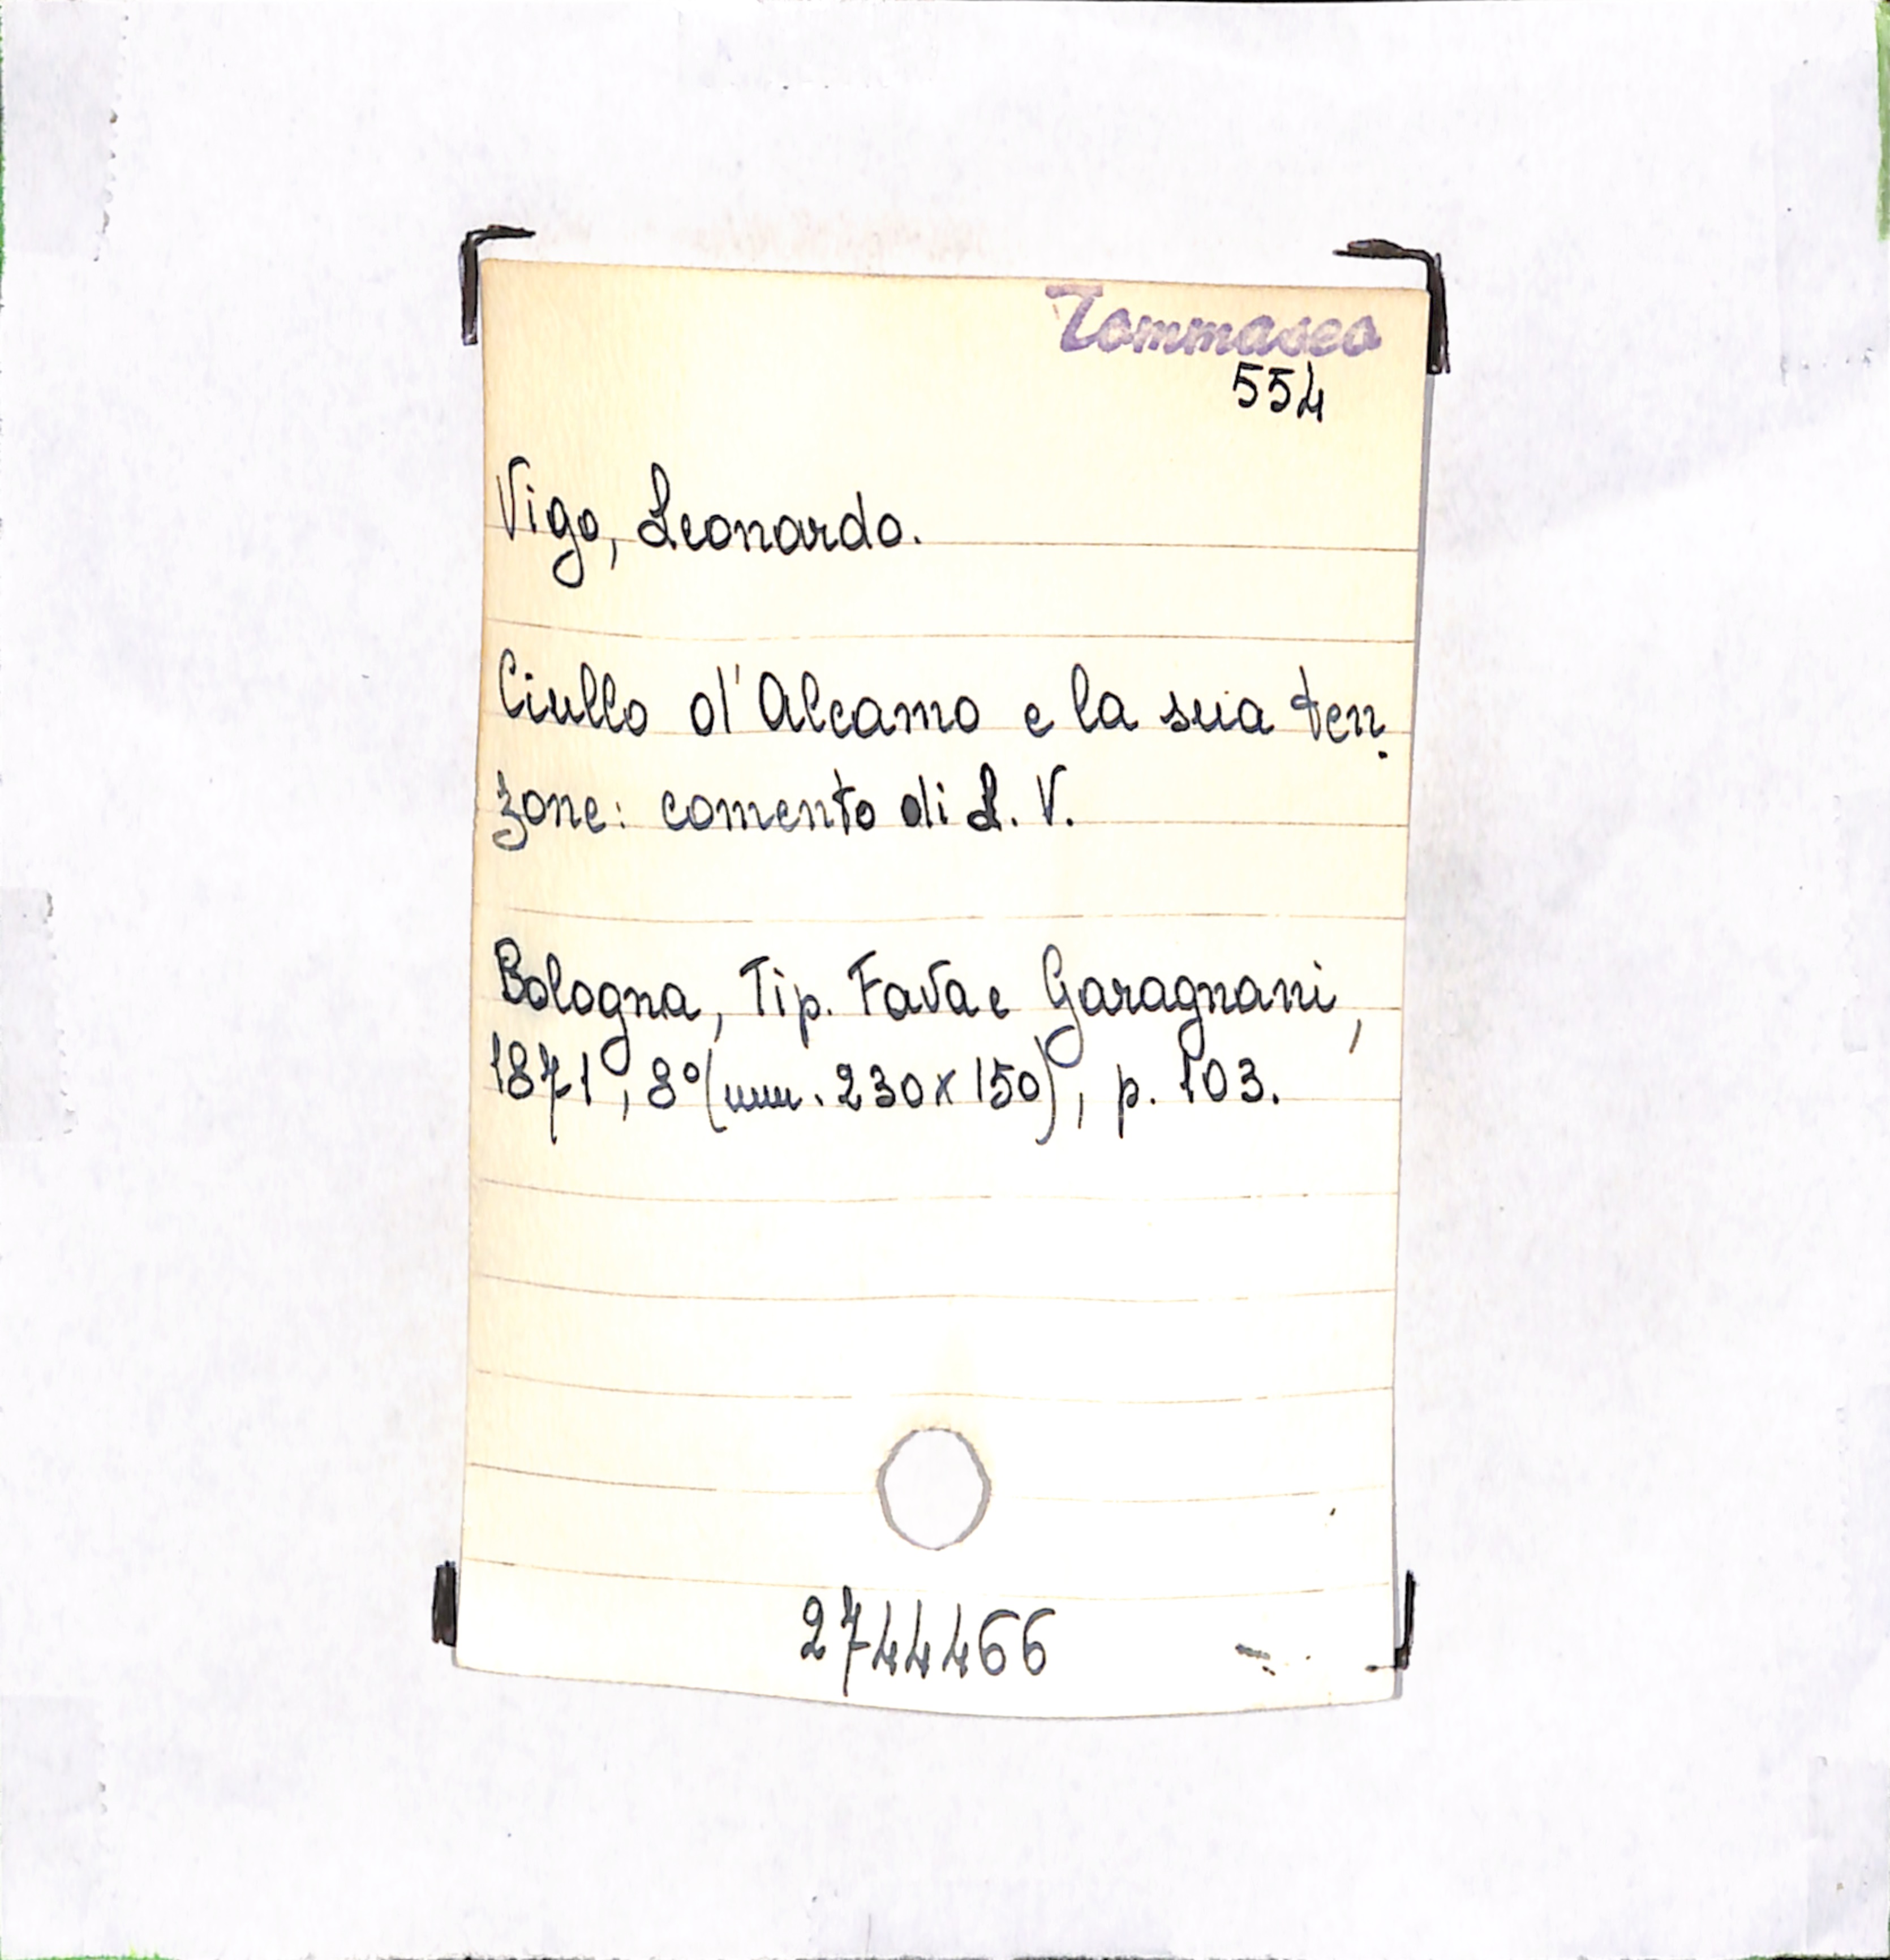 Tommaseo
554
Vigo, Leonardo.
Ciullo d'Alcamo e la sua ten.
zone: comento di L. V.
Bologna, Tip. Fava e Garagnani,
1871, 8°(mm. 230x150), p. 103.
2744466